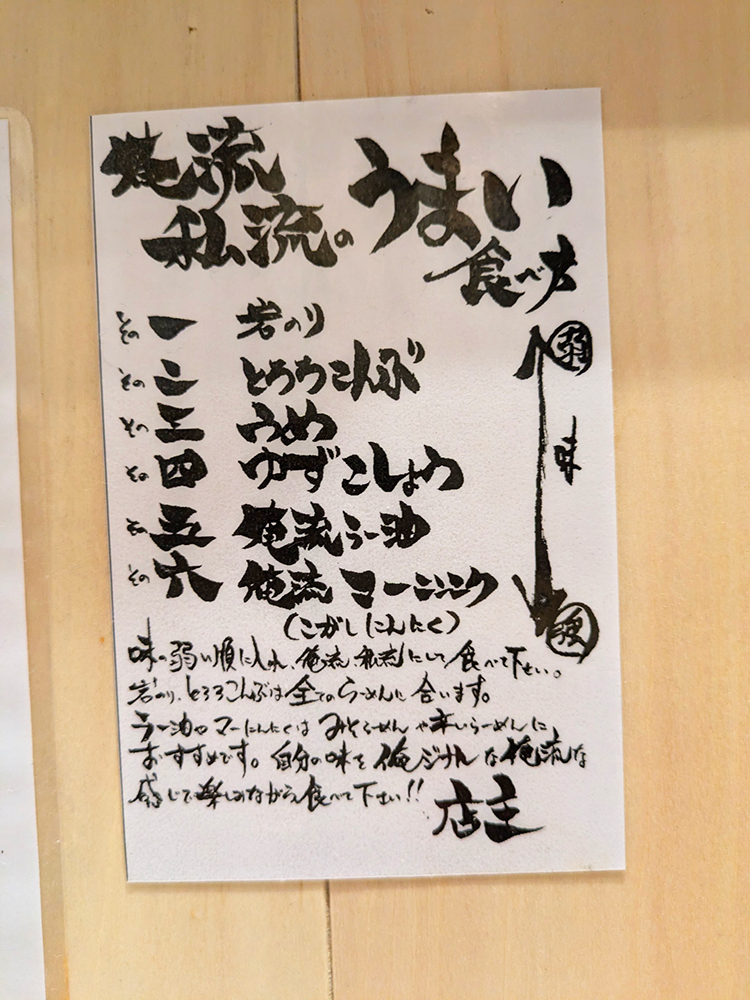 俺流
私流の
うまい
食べ方
その一 岩のり
その二 とろろこんぶ
その三 うめ
その四 ゆずこしょう
その五 俺流らー油
その六 俺流マージンニク
(こがしにんにく)
弱
味
強
味の弱い順に入れ、俺流、私流にして食べて下さい。
岩のり、とろろこんぶは全てのらーめんに合います。
ラー油やマーにんにくはみそらーめんや辛いらーめんに
おすすめです。自分の味を俺ジナルな俺流な
感じで楽しみながら食べて下さい!!
店主